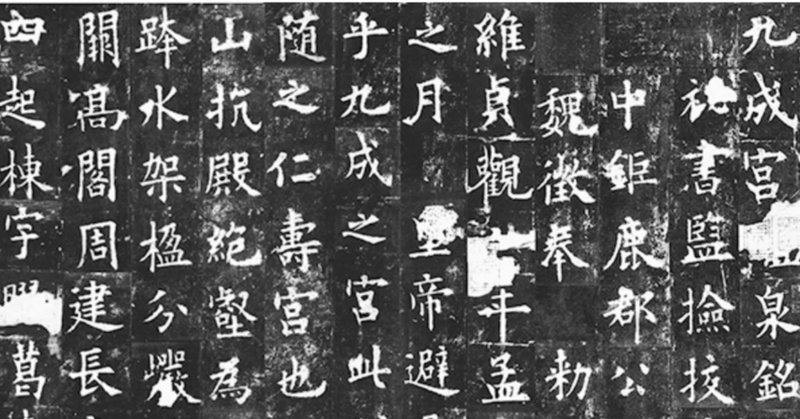 九成宮泉銘
祕書監撿挍
中鉅鹿郡公
魏徵奉 勑
維貞觀年孟
之月 皇帝避
乎九成之宮此
随之仁壽宮也
山抗殿絶壑為
跨水架楹分巖
闕髙閣周建長
四起棟宇葛